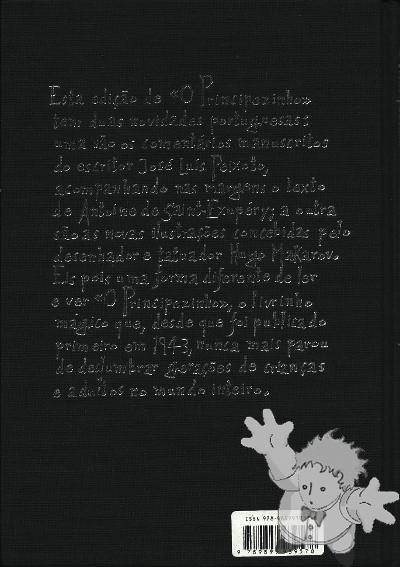 Esta edição de «O Principezinho»
tem duas novidades portuguesas:
uma são os comentários manuscritos
do escritor José Luís Peixoto,
acompanhando nas margens o texto
de Antoine de Saint-Exupéry; a outra
são as novas ilustrações concebidas pelo
desenhador e tatuador Hugo Makarov.
Eis pois uma forma diferente de ler
e ver «O Principezinho», o livrinho
mágico que, desde que foi publicado
primeiro em 1943, nunca mais parou
de deslumbrar gerações de crianças
e adultos no mundo inteiro.